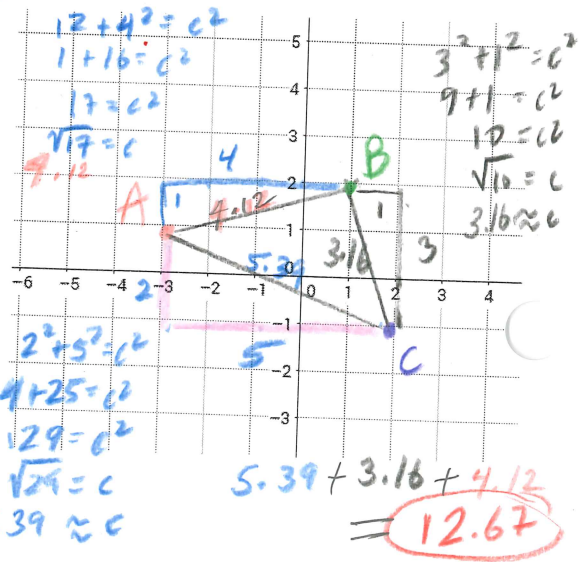 1² + 4² = c²
1 + 16 = c²
17 = c²
√17 = c
4.12
3² + 1² = c²
9 + 1 = c²
10 = c²
√10 = c
3.16 ≈ c
5
4
3
2
1
0
-1
-2
-3
-6 -5 -4 -3 -2 -1 0 1 2 3 4
4
B
A
1
4.12
1
3.16
3
5.39
2
5
C
2² + 5² = c²
4 + 25 = c²
29 = c²
√29 = c
39 ≈ c
5.39 + 3.16 + 4.12
= 12.67